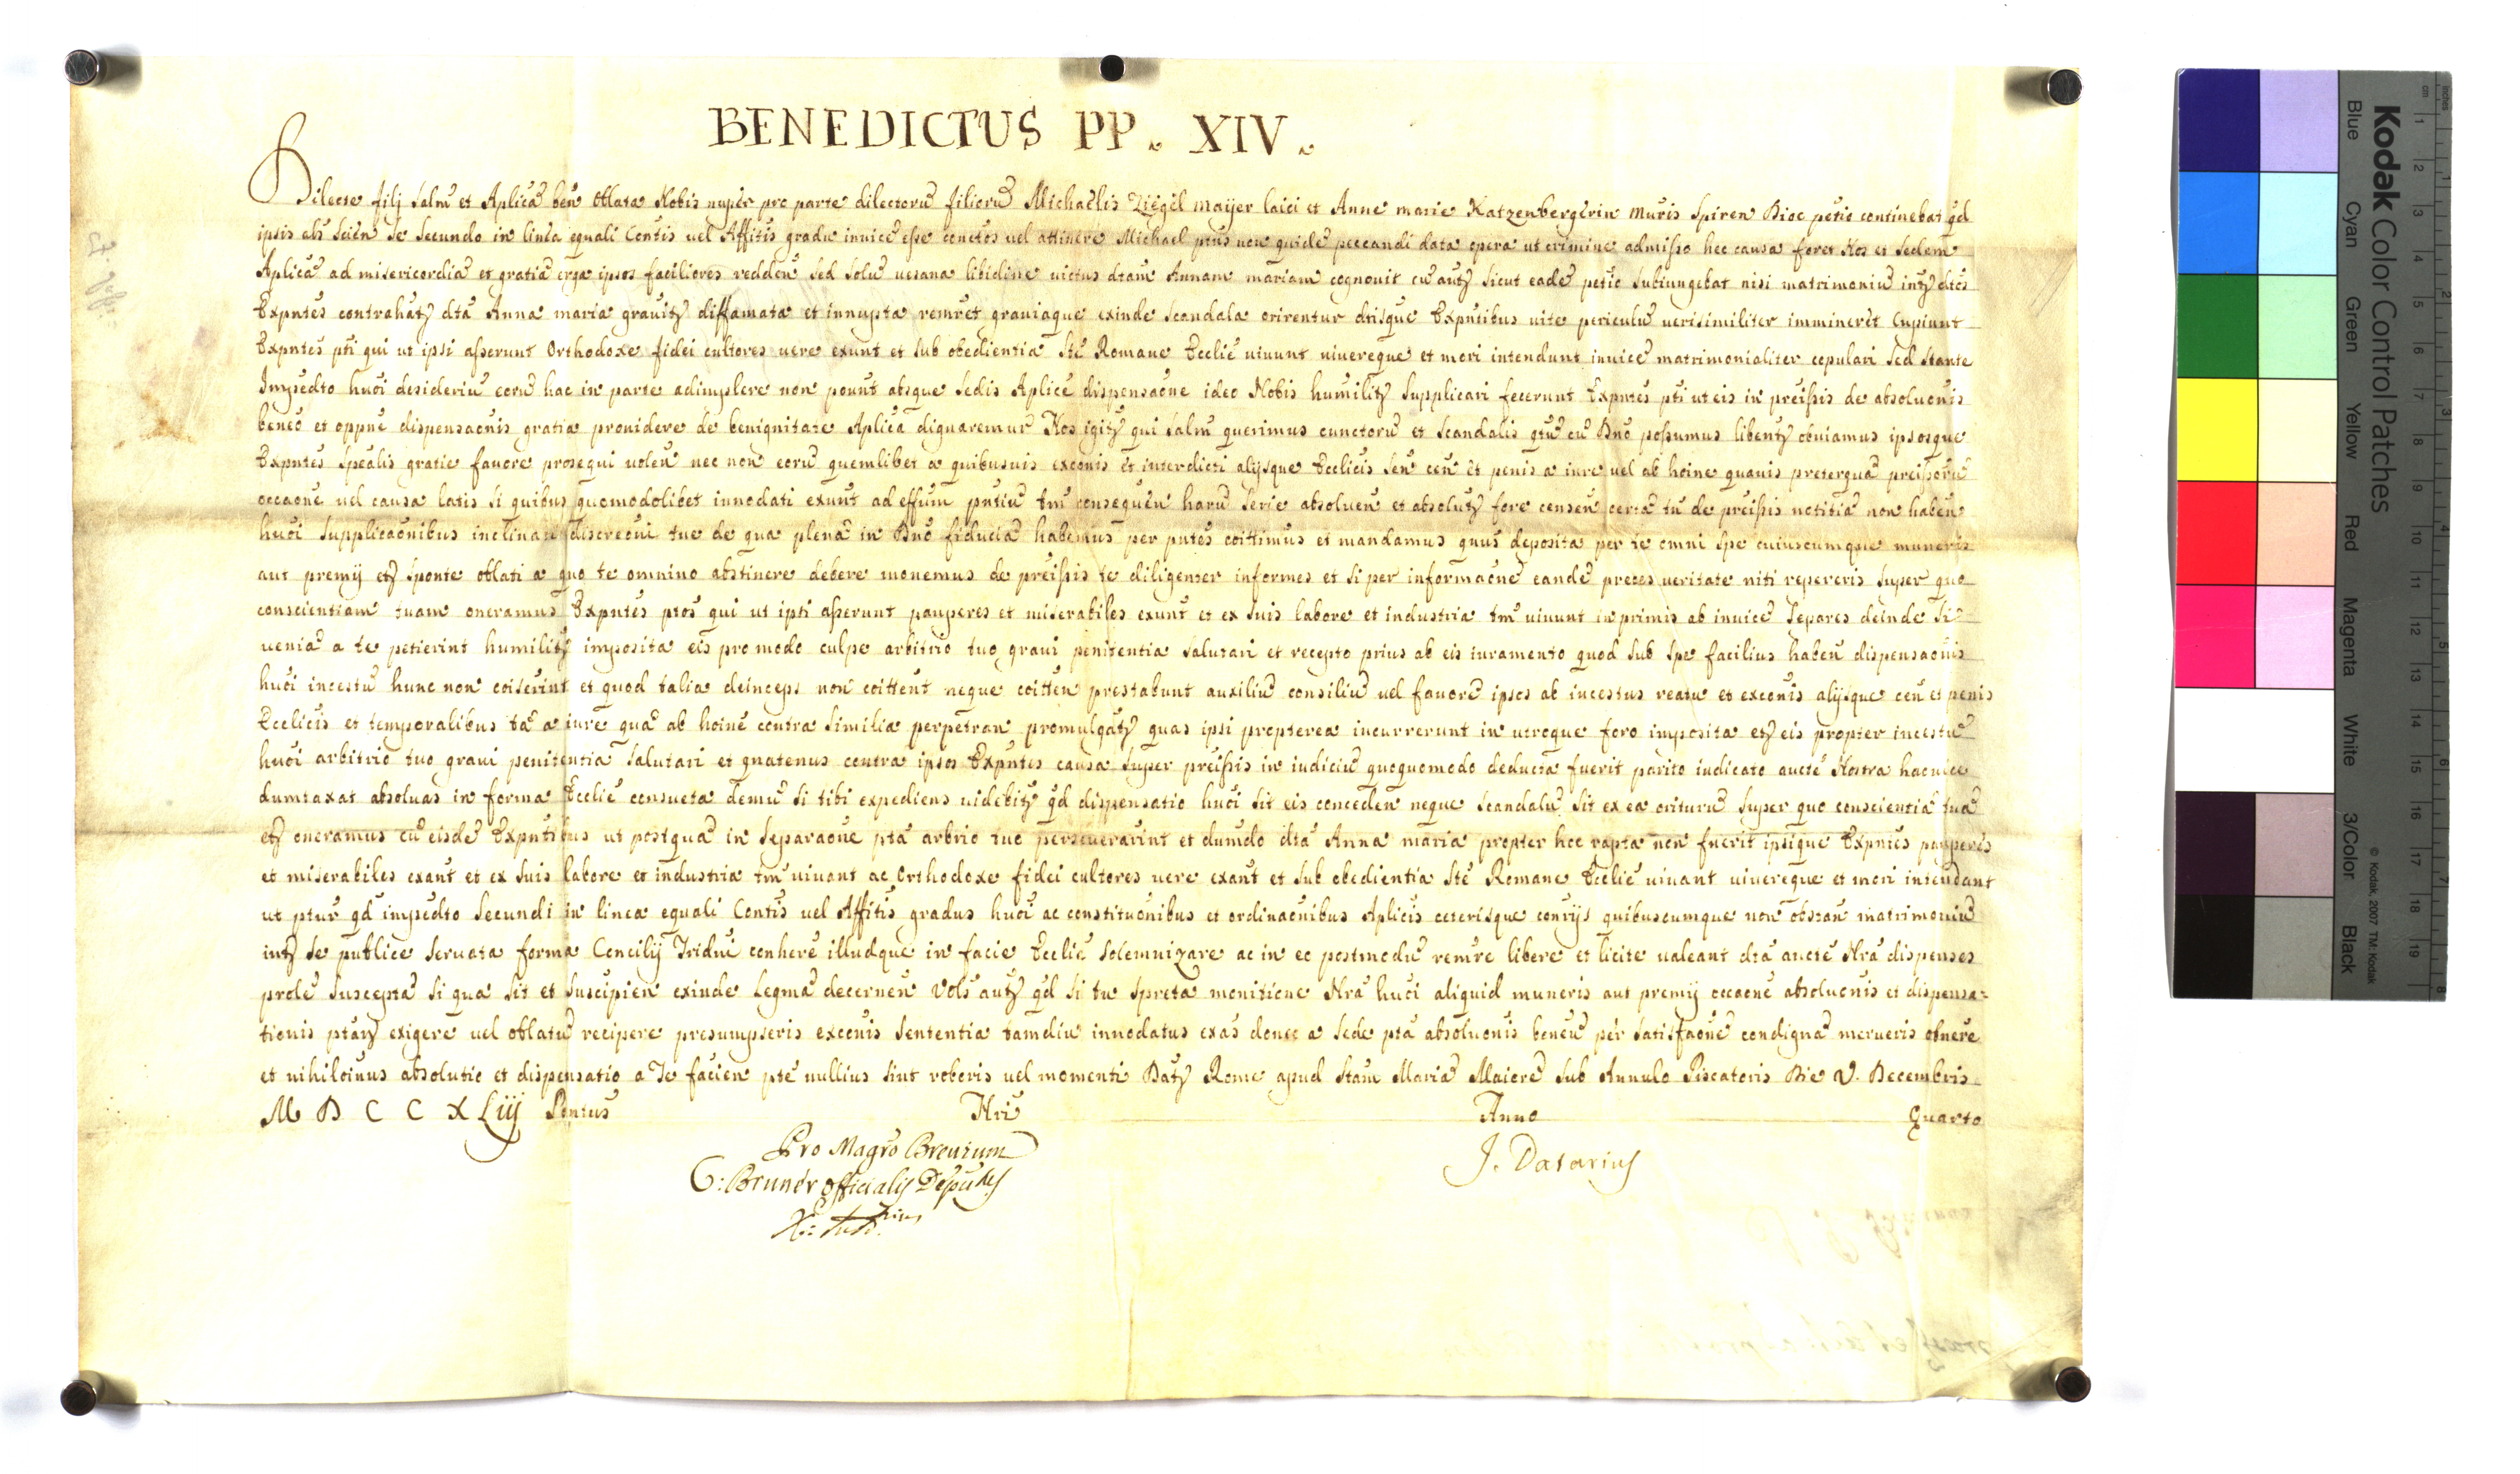 BENEDICTUS PP. XIV.
Dilecte fili salm̃ et Aplicã ben̄ Oblata Nobis nuper pro parte dilectorũ filiorũ Michaelis Ziegel maijer laici et Anne marie Katzenbergerin muris Spiren Dioc petio continebat qd
ipsis als scien se secundo in linea equali Contis uel Affitis gradu inuicẽ esse conictos uel attinere Michael ptus non quidẽ peccandi data opera ut crimine admisso hec causa foret Nos et Sedem
Aplicã ad misericordiã et gratiã erga ipsos faciliores redden sed solũ uesana libidine uictus dtam Annam mariam cognouit cũ autẓ sicut eadẽ petio subiungebat nisi matrimoniũ intẓ dtos
Expntes contrahatẓ dta Anna maria grauitẓ diffamata et innupta remret grauiaque exinde scandala orirentur dtisque Expntibus uite periculũ uerisimiliter immineret Cupiunt
Expntes pti qui ut ipsi asserunt Orthodoxe fidei cultores uere exunt et sub obedientia Ste Romane Ecclie uiuunt uiuereque et mori intendunt inuicẽ matrimonialiter copulari Sed stante
Impedto huõi desideriũ eorũ hac in parte adimplere non pount absque Sedis Aplice dispensaone ideo Nobis humilitẓ supplicari fecerunt Expntes pti ut eis in preissis de absoluonis
beneo et oppne dispensaonis gratia prouidere de benignitate Aplica dignaremur Nos igitẓ qui salm querimus cunctorũ et scandalis qtũ cũ Dno possumus libentẓ obuiamus ipsosque
Expntes spealis gratie fauore prosequi uolen nec non eorũ quemlibet a quibusuis exconis et interdicti alijsque Ecclicis sen cen et penis a iure uel ab hoine quauis preterquã preissorũ
occaone uel causa latis si quibus quomodolibet innodati exunt ad effum pntiũ tm consequen harũ serie absoluen et absolutẓ fore censen certã tn de preissis notitiã non haben
huõi supplicaonibus inclinati discreoni tue de qua plenã in Dno fiduciã habemus per pntes coittimus et mandamus qnus deposita per te omni spe cuiuscumque muneris
aut premij etẓ sponte oblati a quo te omnino abstinere debere monemus de preissis te diligenter informes et si per informaone eandẽ preces ueritate niti repereris super quo
conscientiam tuam oneramus Expntes ptos qui ut ipsi asserunt pauperes et miserabiles exunt et ex suis labore et industria tm uiuunt in primis ab inuicẽ separes deinde si
ueniã a te petierint humilitẓ imposita eis pro modo culpe arbitrio tuo graui penitentia salutari et recepto prius ab eis iuramento quod sub spe facilius haben dispensaonis
huõi incestũ hunc non coiserint et quod talia deinceps non coittent neque coitten prestabunt auxiliũ consiliũ uel fauorẽ ipsos ab incestus reatu et exconis alijsque cen et penis
Ecclicis et temporalibus tã a iure quã ab hoine contra similia perpetran promulgatẓ quas ipsi propterea incurrerunt in utroque foro imposita etẓ eis propter incestũ
huõi arbitrio tuo graui penitentia salutari et quatenus contra ipsos Expntes causa super preissis in iudiciũ quoquomodo deducta fuerit parito iudicato aucte Nostra hac uice
dumtaxat absoluas in forma Ecclie consueta demũ si tibi expediens uidebitẓ qd dispensatio huõi sit eis conceden neque scandalũ sit ex ea oriturũ super quo conscientiã tuã
etẓ oneramus cũ eisdẽ Expntibus ut postquã in separaone pta arbrio tuo perseuerarint et dumdo dta Anna maria propter hoc rapta non fuerit ipsique Expntes pauperes
et miserabiles exant et ex suis labore et industria tm uiuant ac Orthodoxe fidei cultores uere exant et sub obedientia Ste Romane Ecclie uiuant uiuereque et mori intendant
ut ptur qd impedto secundi in linea equali Contis uel Affitis gradus huõi ac constituonibus et ordinaonibus Aplicis ceterisque conrijs quibuscumque non obstan matrimoniũ
intẓ se publice seruata forma Concilij Tridui conhere illudque in facie Ecclie solemnizare ac in eo postmodũ remre libere et licite ualeant dta aucte Nra dispenses
prolẽ susceptã si qua sit et suscipien exinde legmã decernen Vols autẓ qd si tu spreta monitione Nra huõi aliquid muneris aut premij occaone absoluonis et dispensa-
tionis ptarẓ exigere uel oblatũ recipere presumpseris exconis sententia tamdiu innodatus exas donec a Sede pta absoluonis beneũ per satisfaone condignã merueris obnere
et nihiloinus absolutio et dispensatio a Te facien pte nullius sint roboris uel momenti Datẓ Rome apud Stam Mariã Maiorẽ sub Annulo Piscatoris Die V. Decembris
M D C C X Liij Pontus Nri Anno Quarto
Pro Magro Breuium
G: Bruner Officialis Deputus
J. Datarius
Kodak Color Control Patches
Blue Cyan Green Yellow Red Magenta White 3/Color Black
© Kodak, 2007 TM: Kodak
cm 1 2 3 4 5 6 7 8 9 10 11 12 13 14 15 16 17 18 19
inches 1 2 3 4 5 6 7 8